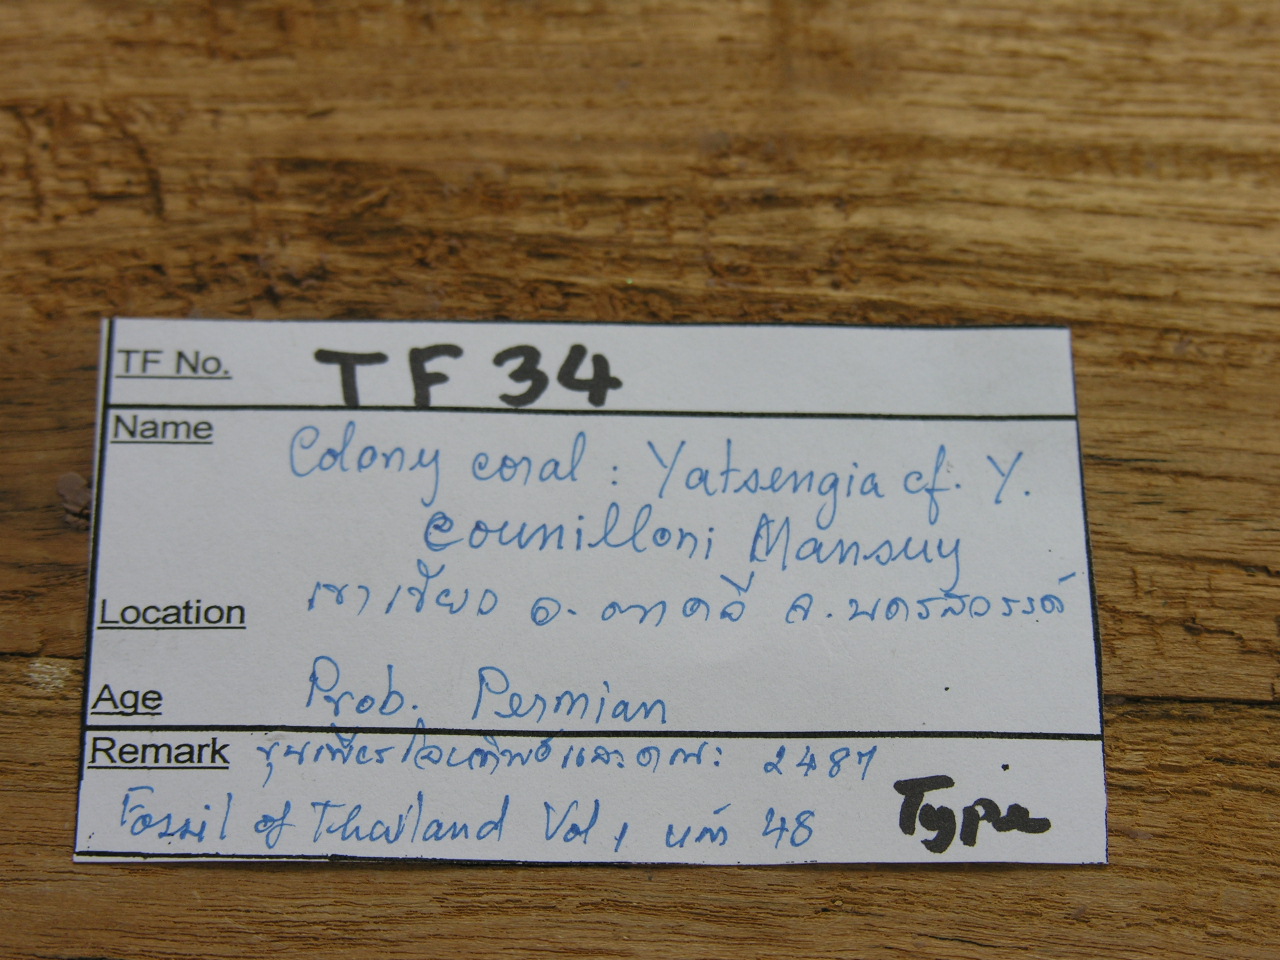 TF No. TF 34
Name Colony coral : Yatsengia cf. Y.
counilloni Mansuy
Location เขาเขียว อ. ตาคลี จ. นครสวรรค์
Age Prob. Permian
Remark และคณะ 2487
Fossil of Thailand Vol 1 หน้า 48 Type